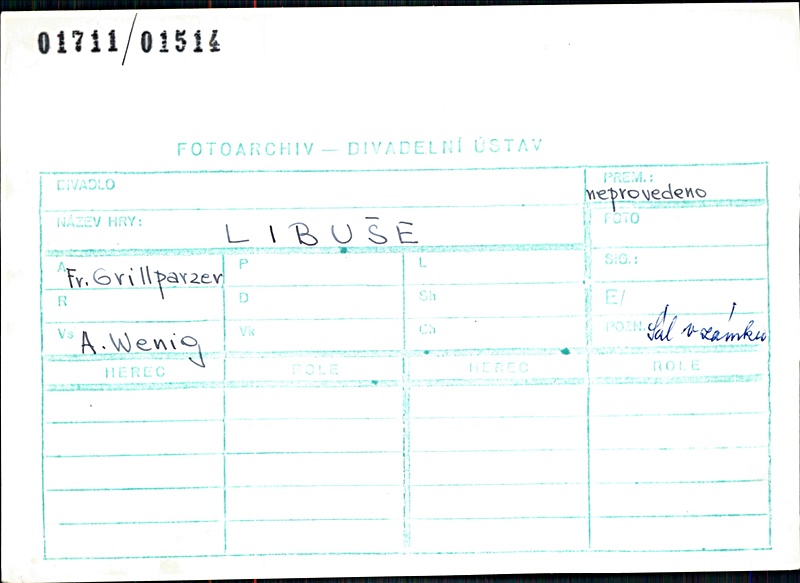 01711/01514
FOTOARCHIV — DIVADELNÍ ÚSTAV
DIVADLO
PREM.:
neprovedeno
NÁZEV HRY:
LIBUŠE
FOTO
A Fr. Grillparzer
P
L
SIG.:
R
D
Sh
E/
Vs A. Wenig
Vk
Ch
POZN. Sál v zámku
HEREC ROLE HEREC ROLE